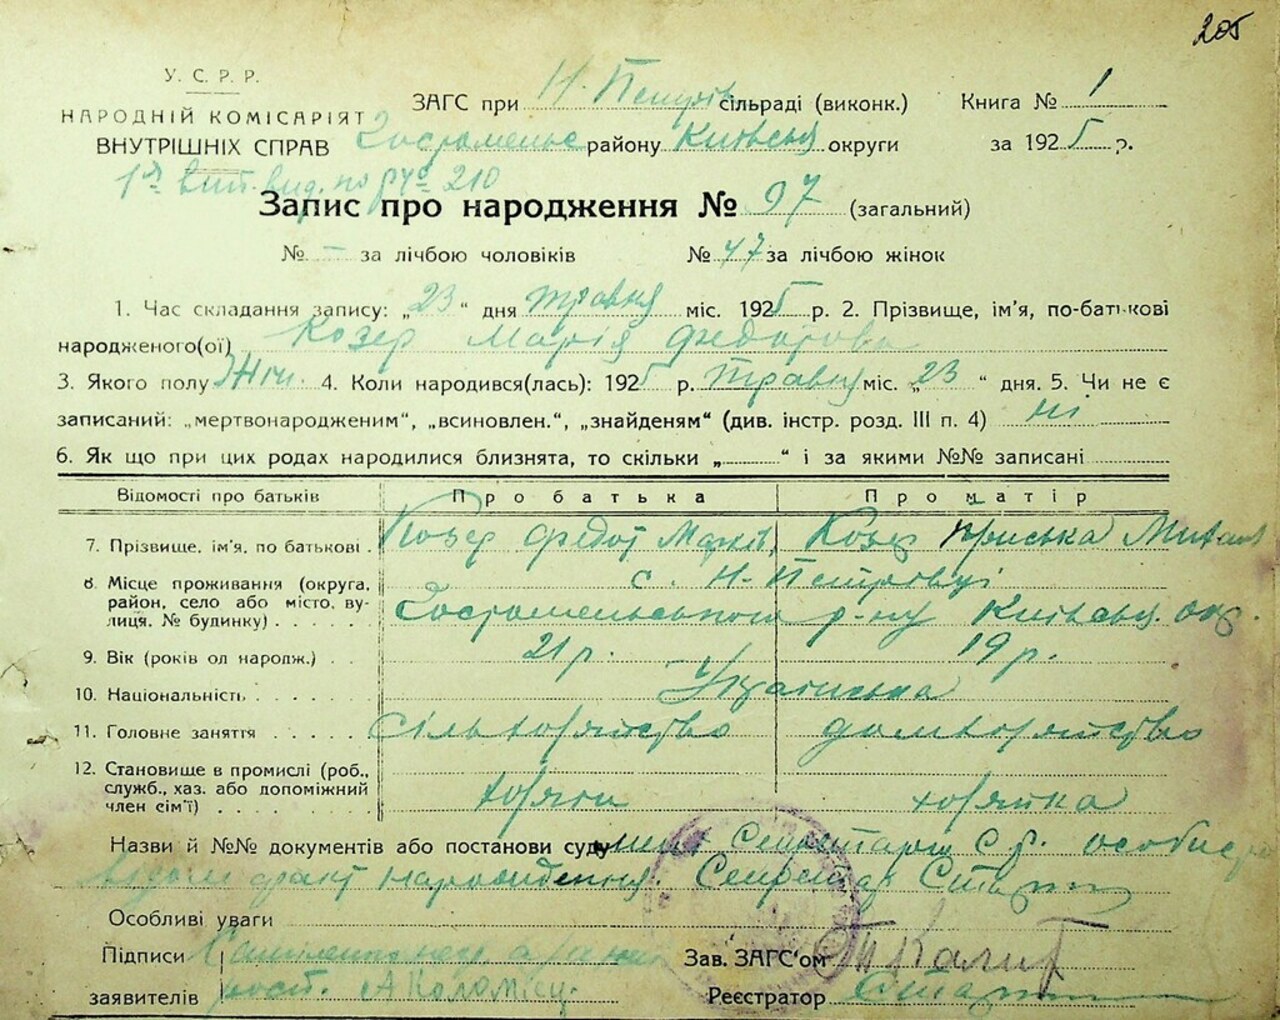 205
У. С. Р. Р.
НАРОДНІЙ КОМІСАРІЯТ
ВНУТРІШНІХ СПРАВ
ЗАГС при Н. Петрів сільраді (виконк.) Книга № 1
району Київськ округи за 1925 р.
210
Запис про народження № 97 (загальний)
№ — за лічбою чоловіків № 47 за лічбою жінок
1. Час складання запису: „23“ дня травня міс. 1925 р. 2. Прізвище, ім'я, по-батькові
народженого(ої) Козер Марія Федотова
3. Якого полу Жін. 4. Коли народився(лась): 1925 р. травня міс. „23“ дня. 5. Чи не є
записаний: „мертвонародженим“, „всиновлен.“, „знайденям“ (див. інстр. розд. III п. 4) ні
6. Як що при цих родах народилися близнята, то скільки „ “ і за якими №№ записані
Відомості про батьків Про батька Про матір
7. Прізвище, ім'я, по батькові Козер Федот Марків, Козер Приська Михайл
8. Місце проживання (округа, район, село або місто, вулиця, № будинку) с. Н-Петрівці
р-ну Київськ. окр.
9. Вік (років од народж.) 21 р. 19 р.
10. Національність Українська
11. Головне заняття сільхозяйство домхозяйство
12. Становище в промислі (роб., служб., хаз. або допоміжний член сім'ї) хозяин хозяйка
Назви й №№ документів або постанови суду Секретарю С. Р. особисто
відом факт народження. Секретар
Особливі уваги
Підписи
заявителів А Коломієц.
Зав. ЗАГС'ом
Реєстратор